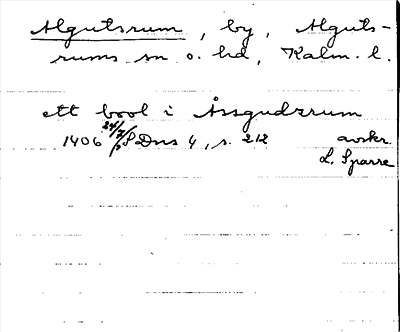 Algutsrum, by, Alguts-
rums sn o. hd, Kalm. l.
ett bool i Assgudzrum
1406 24/7 SDns 4, s. 212 avskr.
L. Sparre